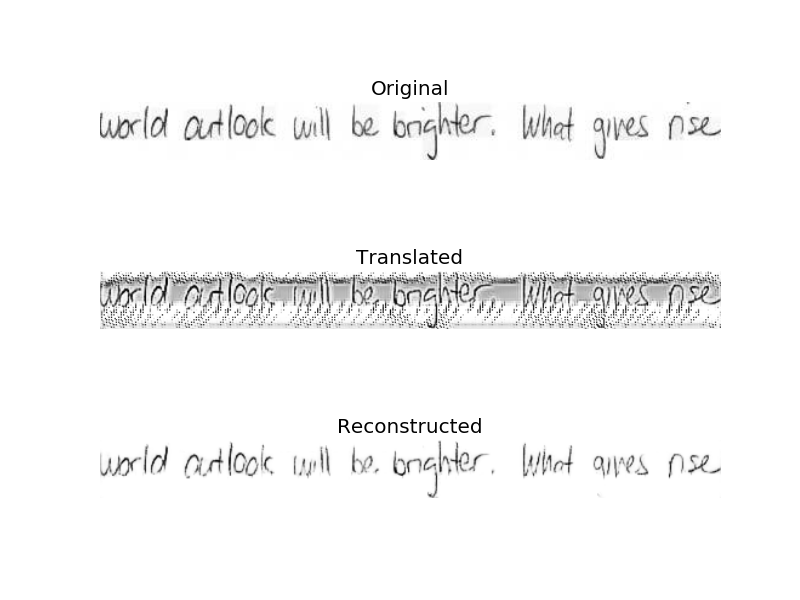 Original
world outlook will be brighter. What gives rise
Translated
world outlook will be. brighter. What gives rise
Reconstructed
world outlook will be. brighter. What gives rise